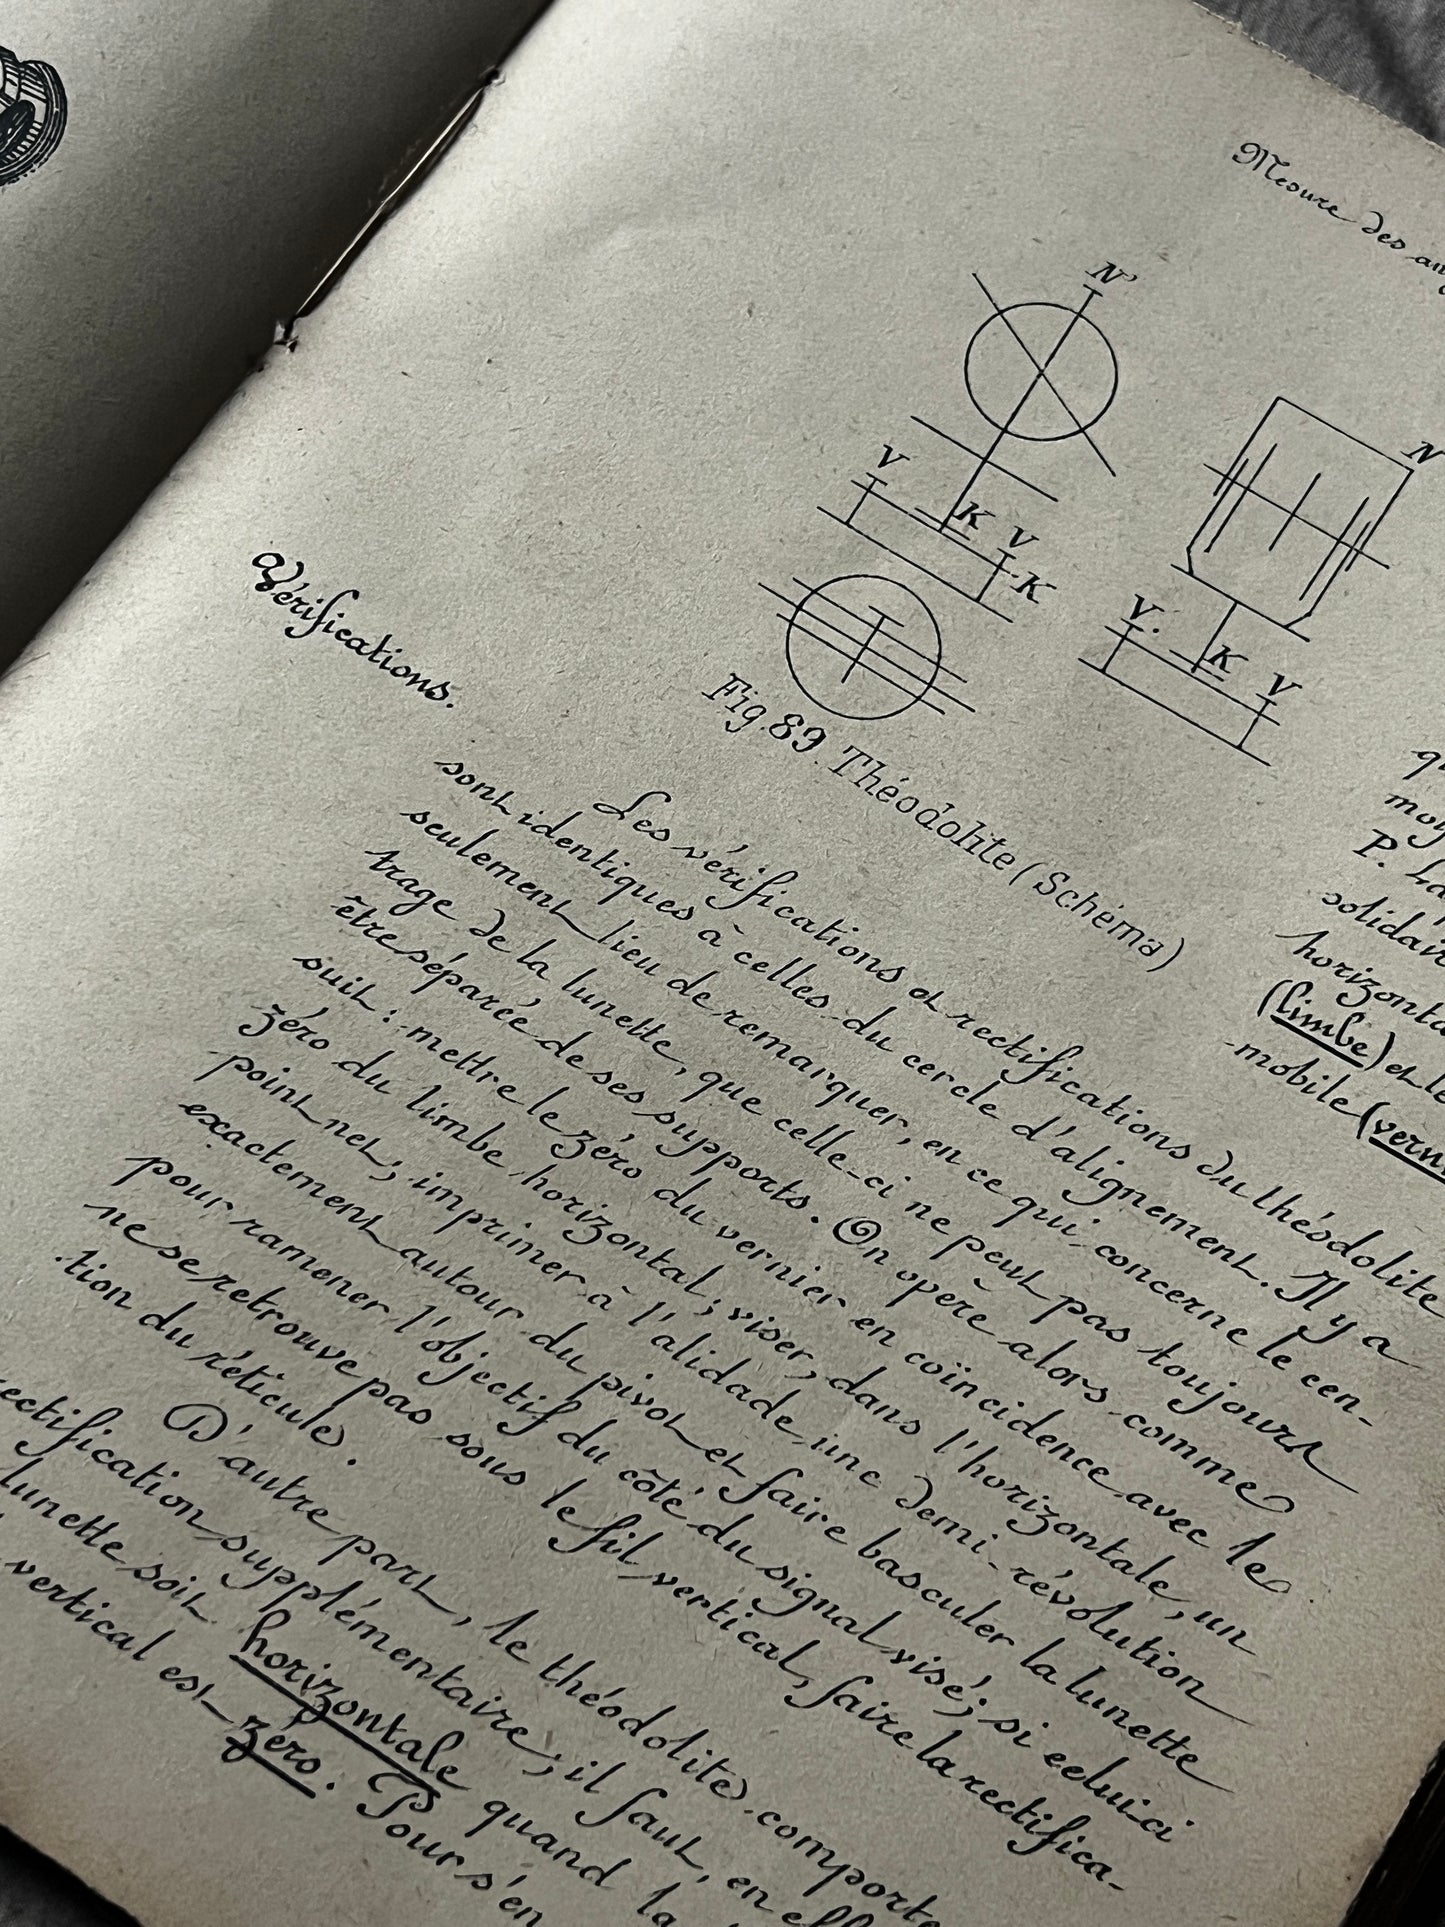 Mesure des
N'
N
V
K
V
K
V.
K
V
Fig. 89. Théodolite (Schéma)
P.
horizonta
(limbe) et le
mobile (vern
Vérifications.
Les vérifications et rectifications du théodolite
sont identiques à celles du cercle d'alignement. Il y a
seulement lieu de remarquer, en ce qui concerne le cen-
trage de la lunette, que celle-ci ne peut pas toujours
être séparée de ses supports. On opère alors comme
suit : mettre le zéro du vernier en coïncidence avec le
zéro du limbe horizontal; viser, dans l'horizontale, un
point net; imprimer à l'alidade une demi-révolution
exactement autour du pivot et faire basculer la lunette
pour ramener l'objectif du côté du signal visé; si celui-ci
ne se retrouve pas sous le fil vertical, faire la rectifica-
tion du réticule.
D'autre part, le théodolite comporte
ectification supplémentaire; il faut, en eff
lunette soit horizontale quand la
vertical est zéro. Pour s'en